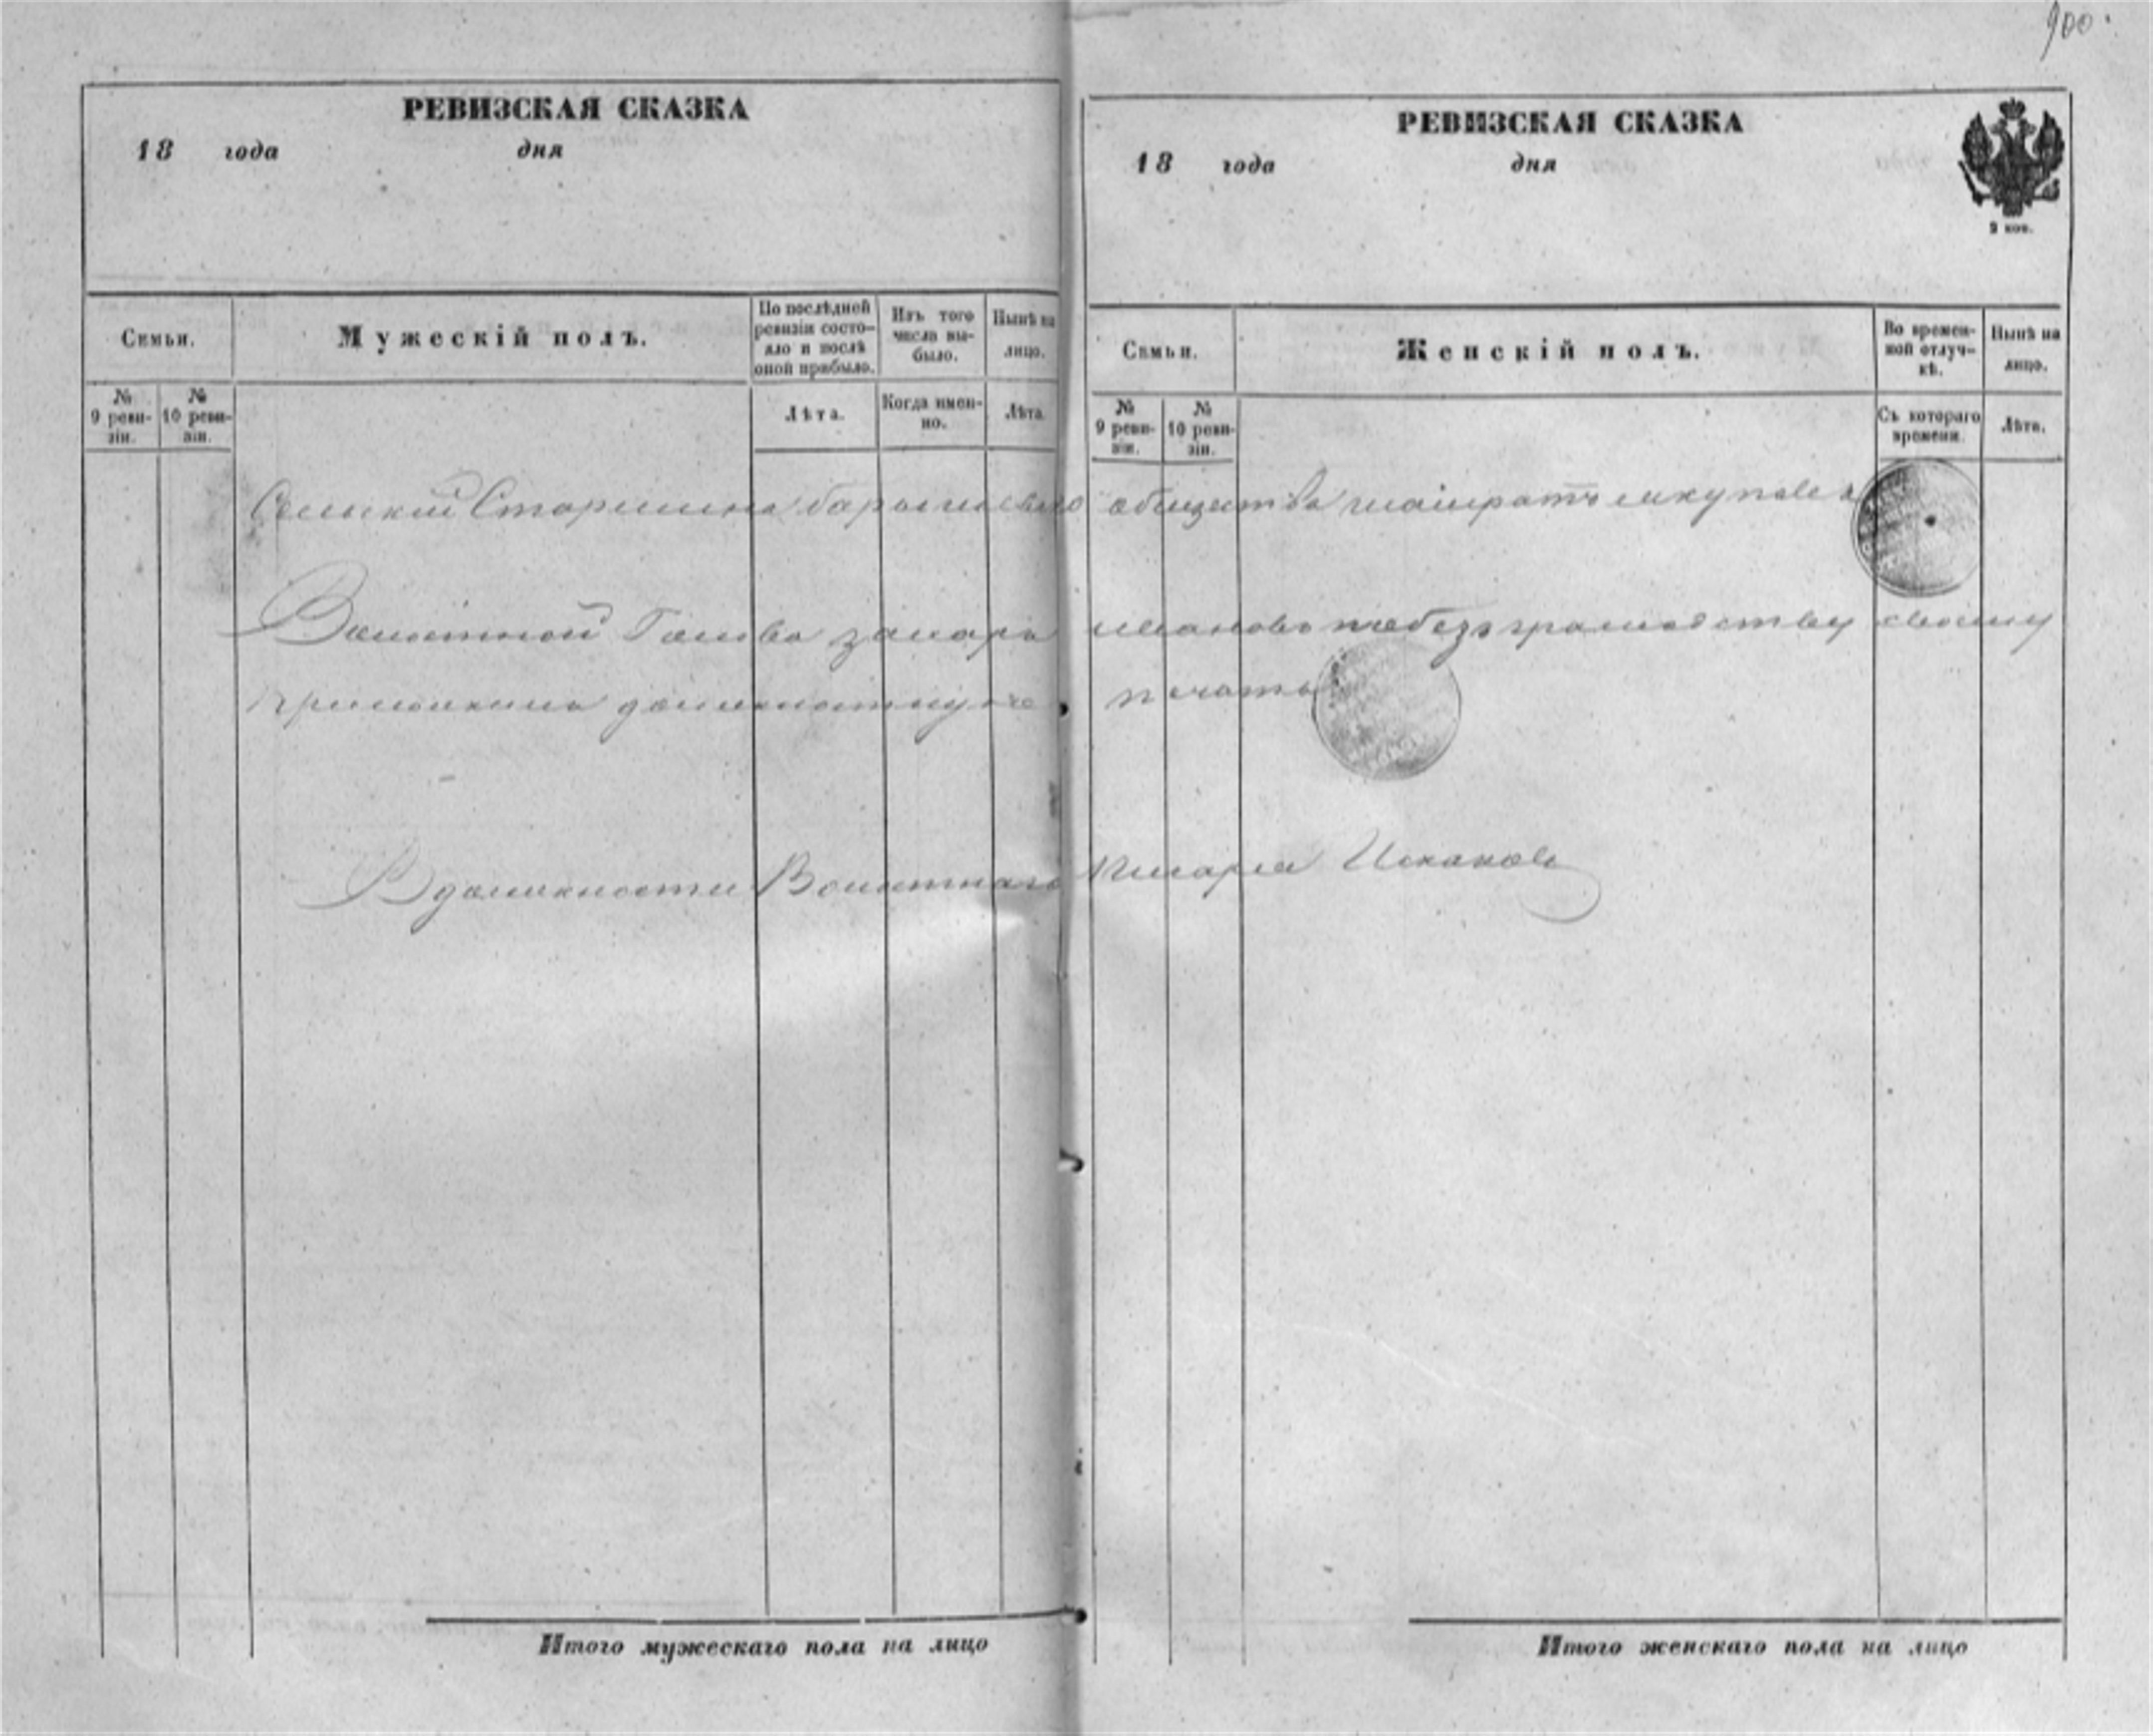 900.
РЕВИЗСКАЯ СКАЗКА
18 года дня
Семьи.
Мужескій полъ.
По послѣдней ревизіи состо-
яло и послѣ оной прибыло.
Изъ того числа вы-
было.
Нынѣ на лицо.
№ 9 реви-
зіи.
№ 10 реви-
зіи.
Лѣта.
Когда имен-
но.
Лѣта.
РЕВИЗСКАЯ СКАЗКА
18 года дня
2 коп.
Семьи.
Женскій полъ.
Во времен-
ной отлуч-
кѣ.
Нынѣ на лицо.
№ 9 реви-
зіи.
№ 10 реви-
зіи.
Съ котораго времени.
Лѣта.
Сельский Старшина общества
Волостной Голова по безграмотству своему
приложилъ должностную печать
В должности Волостнаго Писаря Исхаков
Итого мужескаго пола на лицо
Итого женскаго пола на лицо